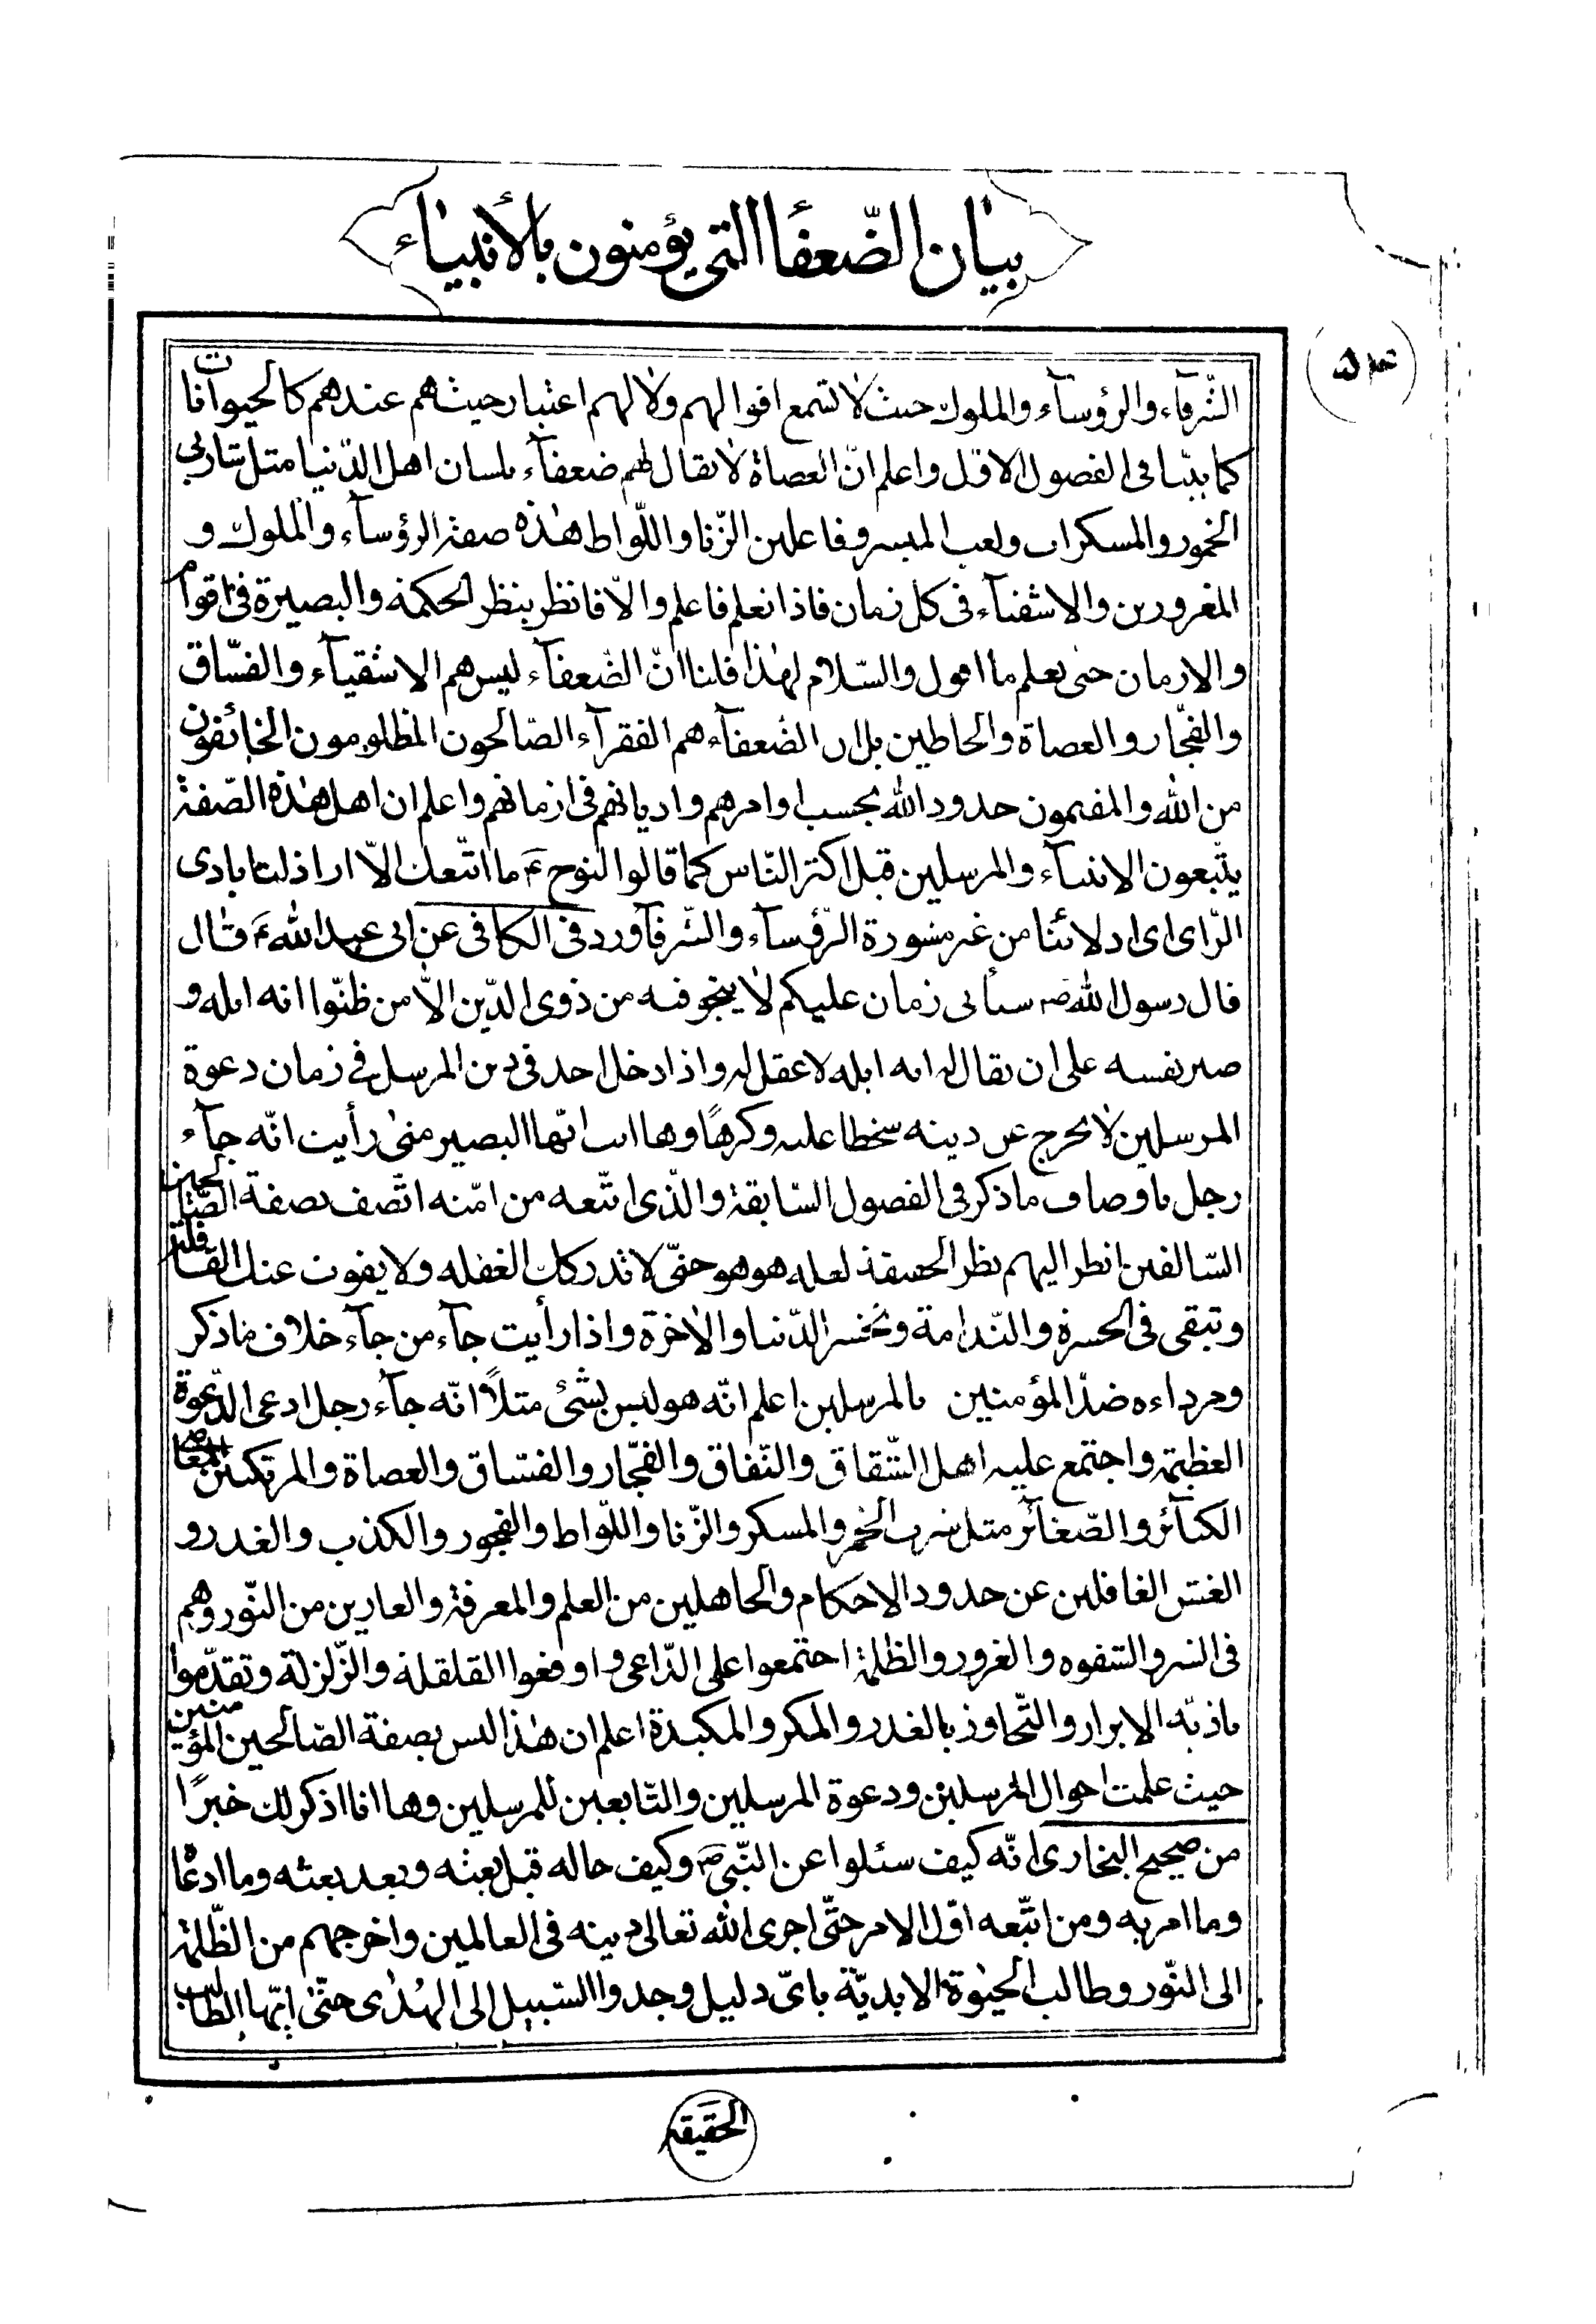 بيان الضّعفأ التى يؤمنون بالأنبيآء
الشّرفآء والرؤسآء والملوك حيث لا تسمع اقوالهم ولا لهم اعتبار حيث هم عندهم كالحيوانات
كما بيّنا فى الفصول الاوّل واعلم انّ العصاة لا يقال لهم ضعفآء بلسان اهل الدّنيا مثل شاربى
الخمور والمسكرات ولعب الميسر وفاعلين الزّنا واللّواط هٰذه صفة الرؤسآء والملوك و
المغرورين والاشقيآء فى كل زمان فاذا نعلم فاعلم والّا فانظر بنظر الحكمة والبصيرة فى اقوام
والازمان حتى يعلم ما اقول والسّلام لهٰذا قلنا انّ الضّعفآء ليس هم الاشقيآء والفسّاق
والفجّار والعصاة والخاطين بل ان الضّعفآء هم الفقرآء الصّالحون المظلومون الخائفون
من اللّه والمقيمون حدود اللّه بحسب اوامرهم واديانهم فى ازمانهم واعلم ان اهل هٰذه الصّفة
يتّبعون الانبيآء والمرسلين قبل اكثر النّاس كما قالوا لنوح ع ما اتّبعك الّا اراذلنا بادى
الرّاى اى ادلائنا من غير مشورة الرّؤسآء والشّرفآ ورد فى الكافى عن ابى عبد اللّه ع قال
قال رسول اللّه ص سيأتى زمان عليكم لا ينجو فيه من ذوى الدّين الّا من ظنّوا انه ابله و
صبر نفسه على ان يقال له انه ابله لا عقل له واذا دخل احد فى دين المرسل فى زمان دعوة
المرسلين لا يخرج عن دينه سخطا عليه وكرهًا وها انت ايّها البصير متىٰ رأيت انّه جآء
رجل باوصاف ما ذكر فى الفصول السّابقة والّذى اتّبعه من امّته اتّصف بصفة الصّالحين
السّالفين انظر اليهم بنظر الحقيقة لعله هو هو حتّى لا تدركك الغفله ولا يفوت عنك القافلة
وتبقى فى الحسرة والنّدامة وتخسر الدّنيا والاخرة واذا رأيت جآء من جآء خلاف ما ذكر
ومن داءه ضدّ المؤمنين بالمرسلين اعلم انّه هو ليس بشئ مثلاً انّه جآء رجل ادعى الدّعوة
العظيمة واجتمع عليه اهل الشّقاق والنّفاق والفجّار والفسّاق والعصاة والمرتكبين المعاصى
الكبآئر والصّغآئر مثل شرب الخمر والمسكر والزّنا واللّواط والفجور والكذب والغدر و
الغش الغافلين عن حدود الاحكام والجاهلين من العلم والمعرفة والعارين من النّور وهم
فى الشر والشقوه والغرور والظلمة اجتمعوا على الدّاعى واوقعوا القلقلة والزّلزلة وتقدّموا
باذيّه الابرار والتّجاوز بالغدر والمكر والمكيدة اعلم ان هٰذا ليس بصفة الصّالحين المؤمنين
حيث علمت احوال المرسلين ودعوة المرسلين والتّابعين للمرسلين وها انا اذكر لك خبرًا
من صحيح البخارى انّه كيف سئلوا عن النّبى ص وكيف حاله قبل بعثه وبعد بعثه وما ادعا
وما امر به ومن اتّبعه اوّل الامر حتّى اجرى اللّه تعالى دينه فى العالمين واخرجهم من الظّلمة
الى النّور وطالب الحيٰوة الابديّة باىّ دليل وجدوا السّبيل الى الهُدٰى حتّىٰ ايّها الطالب
الحقيقة